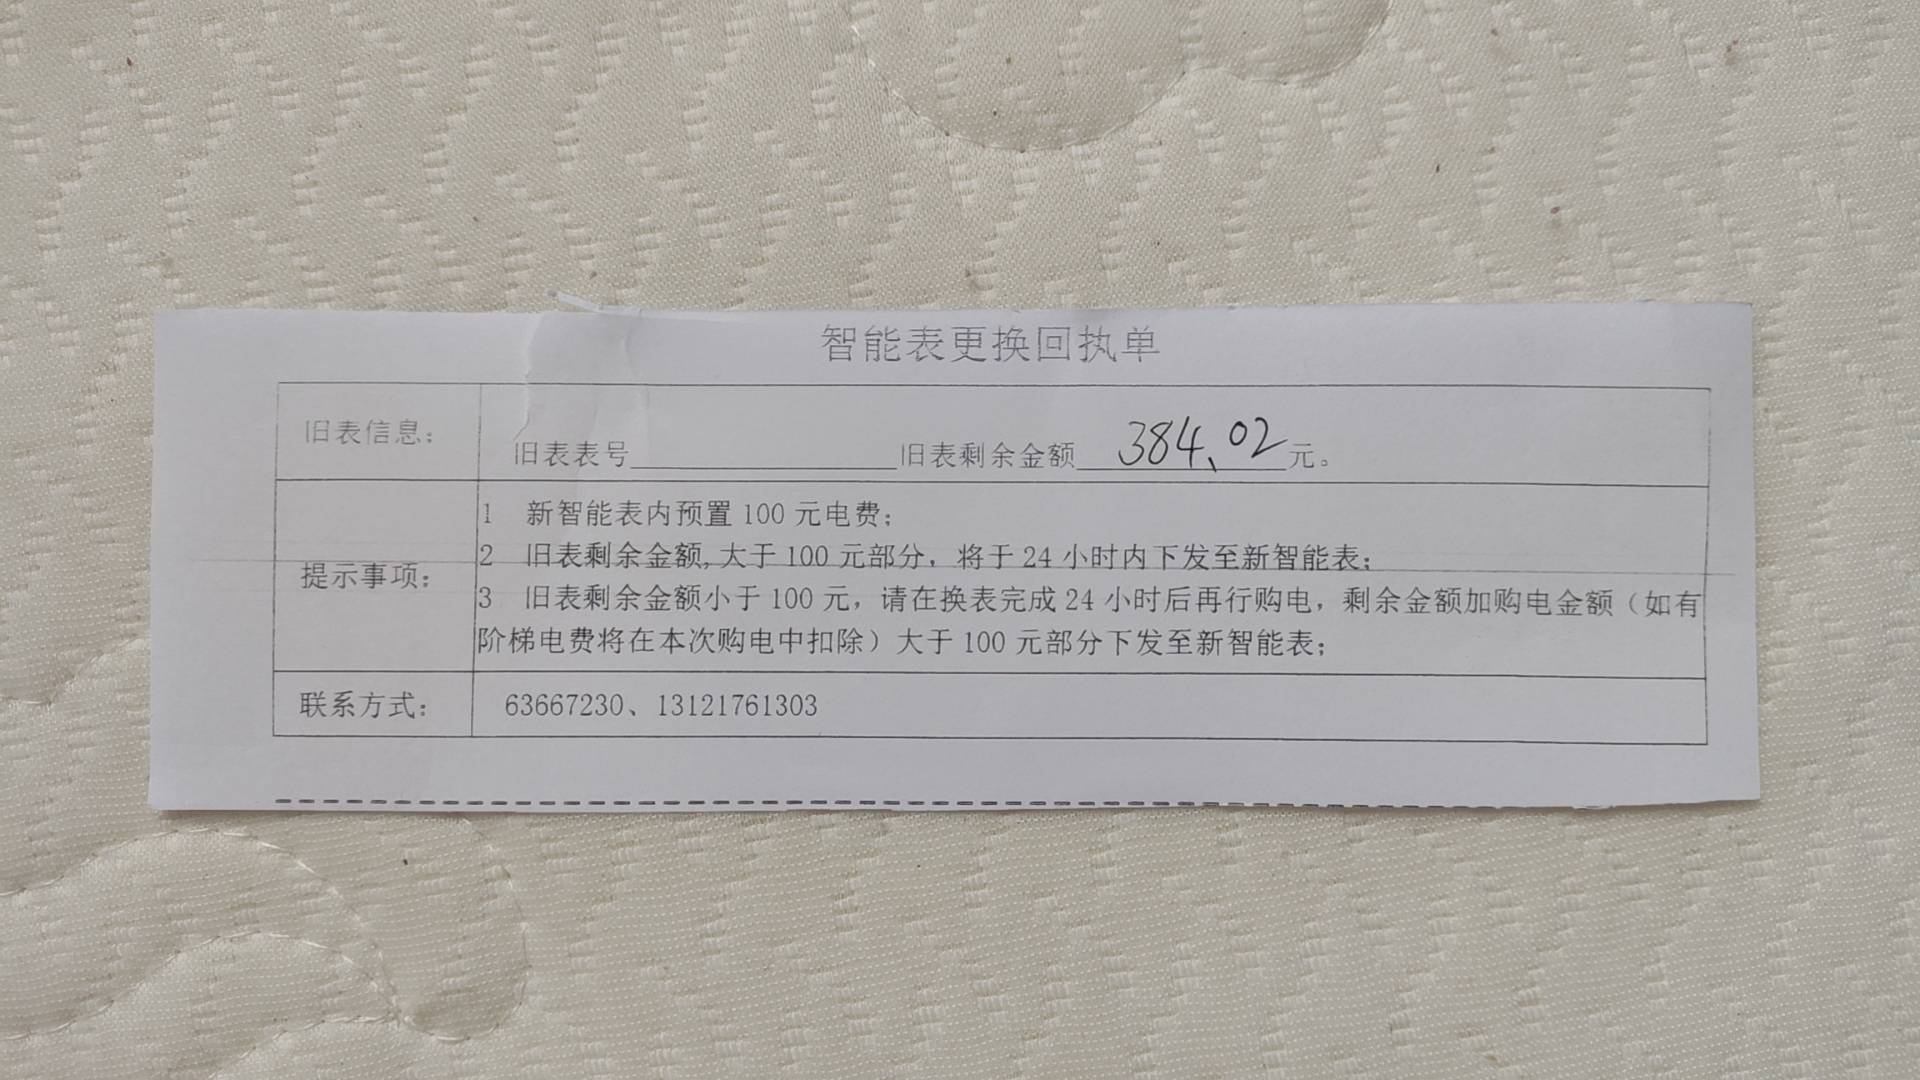 智能表更换回执单
旧表信息：
旧表表号____________旧表剩余金额 384.02 元。
提示事项：
1 新智能表内预置 100 元电费；
2 旧表剩余金额,大于 100 元部分，将于 24 小时内下发至新智能表；
3 旧表剩余金额小于 100 元，请在换表完成 24 小时后再行购电，剩余金额加购电金额（如有
阶梯电费将在本次购电中扣除）大于 100 元部分下发至新智能表；
联系方式：
63667230、13121761303